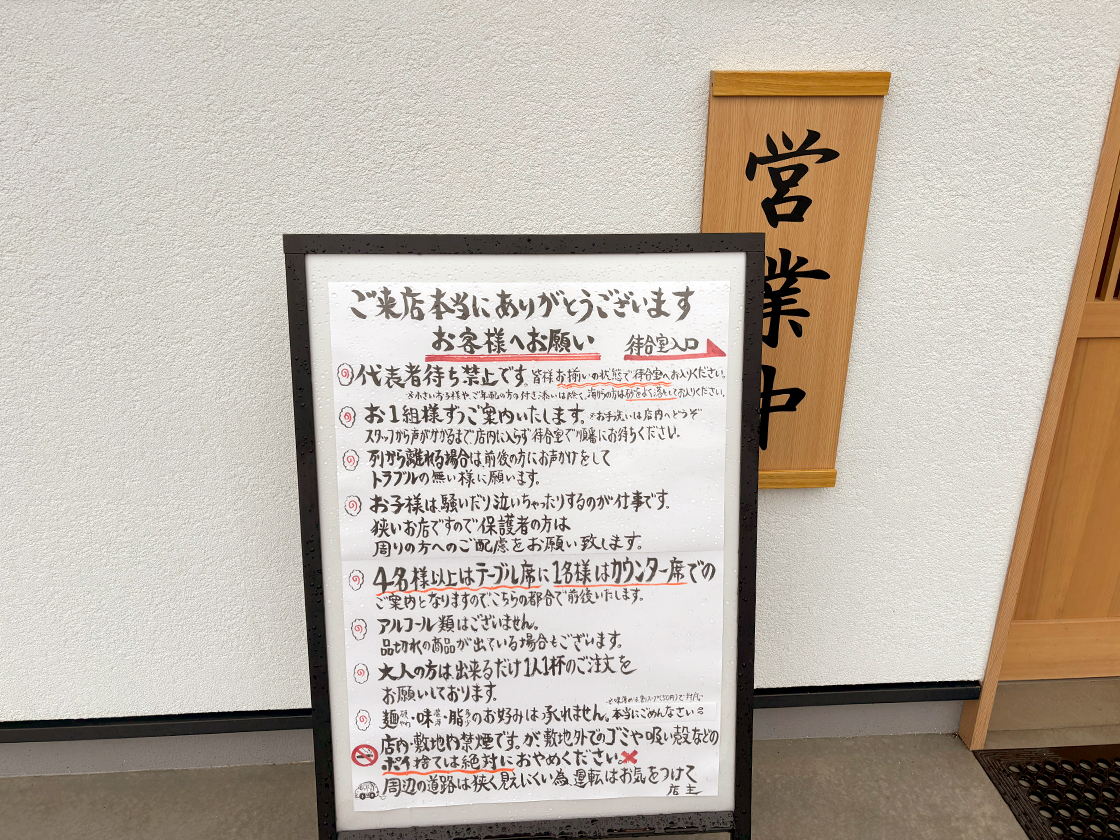 営業中
ご来店本当にありがとうございます
お客様へお願い
待合室入口
代表者待ち禁止です。皆様お揃いの状態で待合室へお入りください。
※小さいお子様や、ご年配の方の付き添いは除く、海からの方は砂をよく落としてお入りください。
お1組様ずつご案内いたします。※お手洗いは店内へどうぞ
スタッフから声がかかるまで店内に入らず待合室で順番にお待ちください。
列から離れる場合は、前後の方にお声かけをして
トラブルの無い様に願います。
お子様は、騒いだり泣いちゃったりするのが仕事です。
狭いお店ですので保護者の方は
周りの方へのご配慮をお願い致します。
4名様以上はテーブル席に1名様はカウンター席での
ご案内となりますので、こちらの都合で前後いたします。
アルコール類はございません。
品切れの商品が出ている場合もございます。
大人の方は出来るだけ1人1杯のご注文を
お願いしております。
麺・味・脂のお好みは承れません。本当にごめんなさい
店内・敷地内禁煙です。が、敷地外でのゴミや吸い殻などの
ポイ捨ては絶対におやめください。
周辺の道路は狭く見えにくい為、運転はお気をつけて
店主